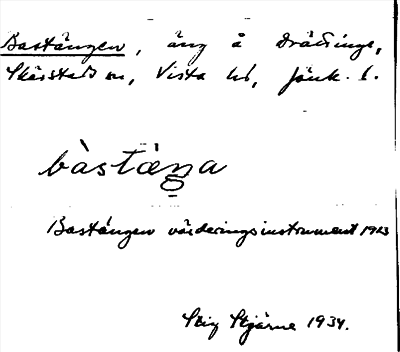 Bastången, äng å Drättinge,
Skärstads sn, Vista hd, Jönk. l.
bàstäŋa
Bastången värderingsinstrument 1923
Stig Stjärne 1934.